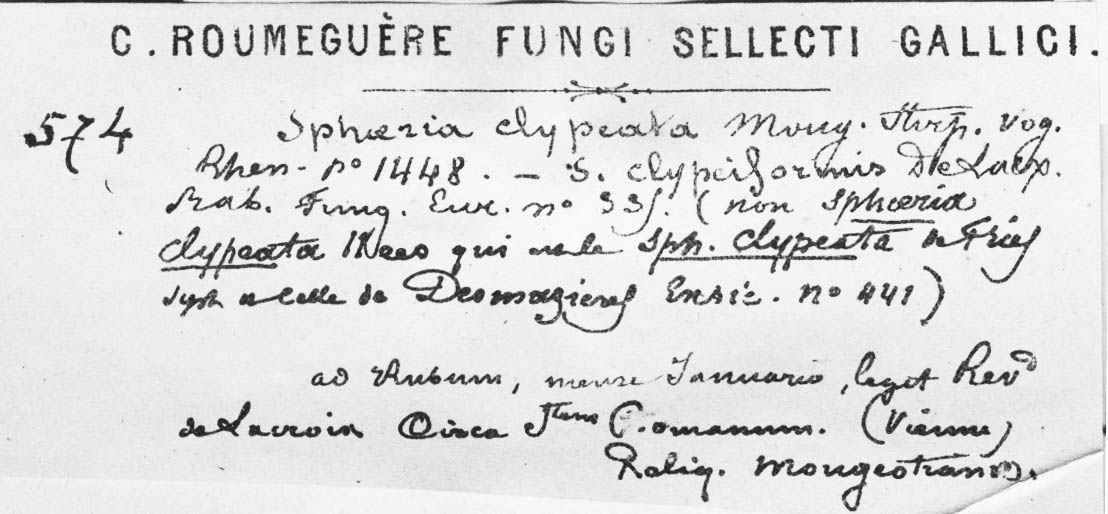 C. ROUMEGUÈRE FUNGI SELLECTI GALLICI.
574 Sphæria clypeata Moug. Stirp. Vog.
Rhen. nº 1448. — S. clypeiformis De Lacx.
Rab. Fung. Eur. nº 335. (non Sphæria
clypeata Nees qui est le Sph. clypeata de Fries
Syst et celle de Desmazieres Exsic. nº 441)
ad Rubum, mense Januario, legit Revd
de Lacroix Circa Stum Romanum. (Vienne)
Reliq. Mougeotianæ.